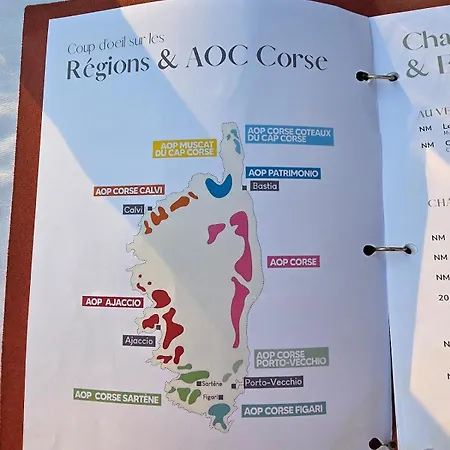 Coup d'oeil sur les
Régions & AOC Corse
AOP CORSE COTEAUX
DU CAP CORSE
AOP MUSCAT
DU CAP CORSE
AOP PATRIMONIO
Bastia
AOP CORSE CALVI
Calvi
AOP CORSE
AOP AJACCIO
Ajaccio
AOP CORSE
PORTO-VECCHIO
Sartène
Porto-Vecchio
Figari
AOP CORSE SARTÈNE
AOP CORSE FIGARI
Cha
&
AU VE
NM
NM
CHA
NM
NM
NM
20
N
N